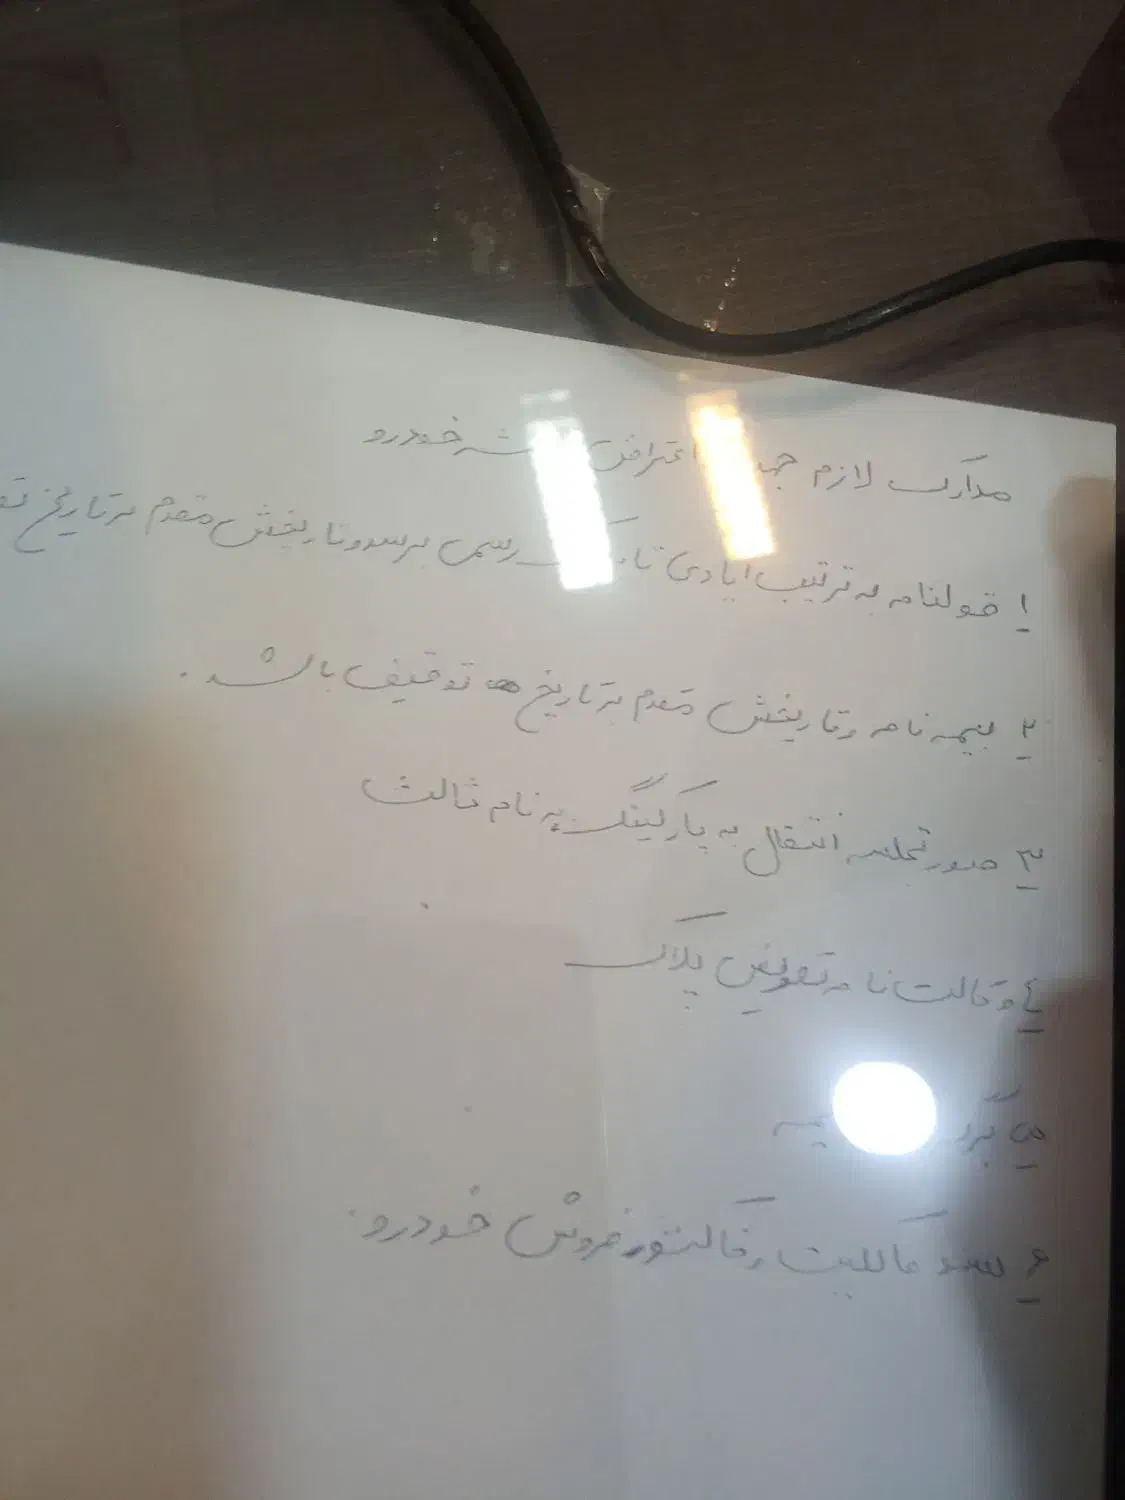 مدارک لازم اعتراض خودرو
۱ قولنامه به ترتیب ایادی تا رسمی برسد و تاریخش مقدم بر تاریخ
۲ بیمه نامه و تاریخش مقدم بر تاریخ توقیف باشد.
۳ صورتجلسه انتقال به پارکینگ به نام ثالث
۴ وکالت نامه تعویض پلاک
۵
۶ سند مالکیت و فاکتور فروش خودرو.